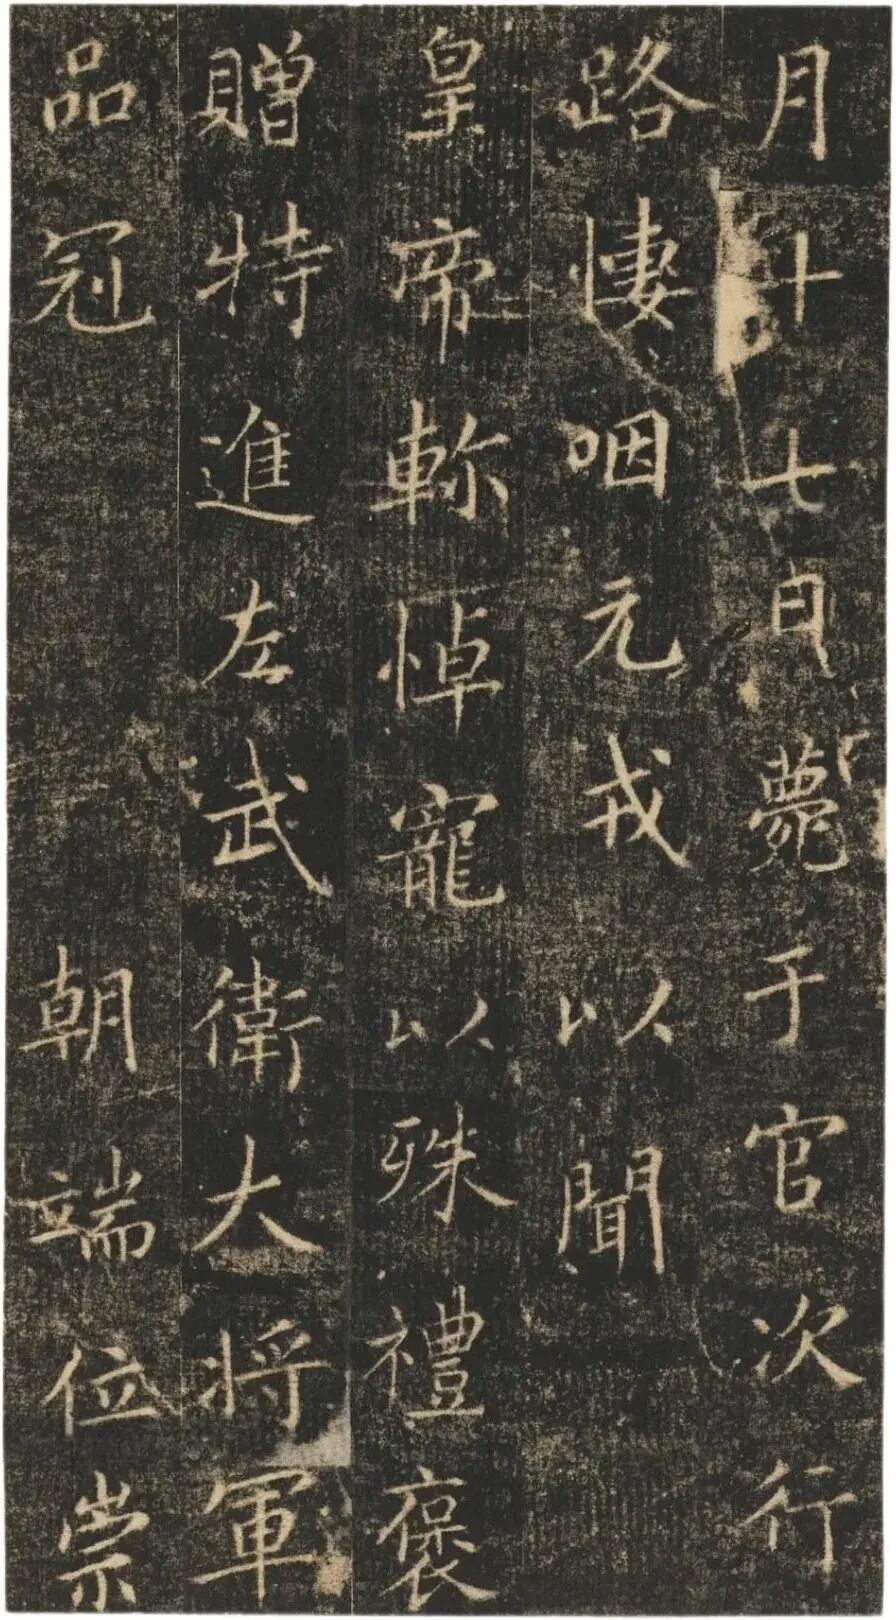 月十七日薨于官次行
路悽咽元戎以聞
皇帝軫悼寵以殊禮褒
贈特進左武衛大将軍
品冠朝端位崇